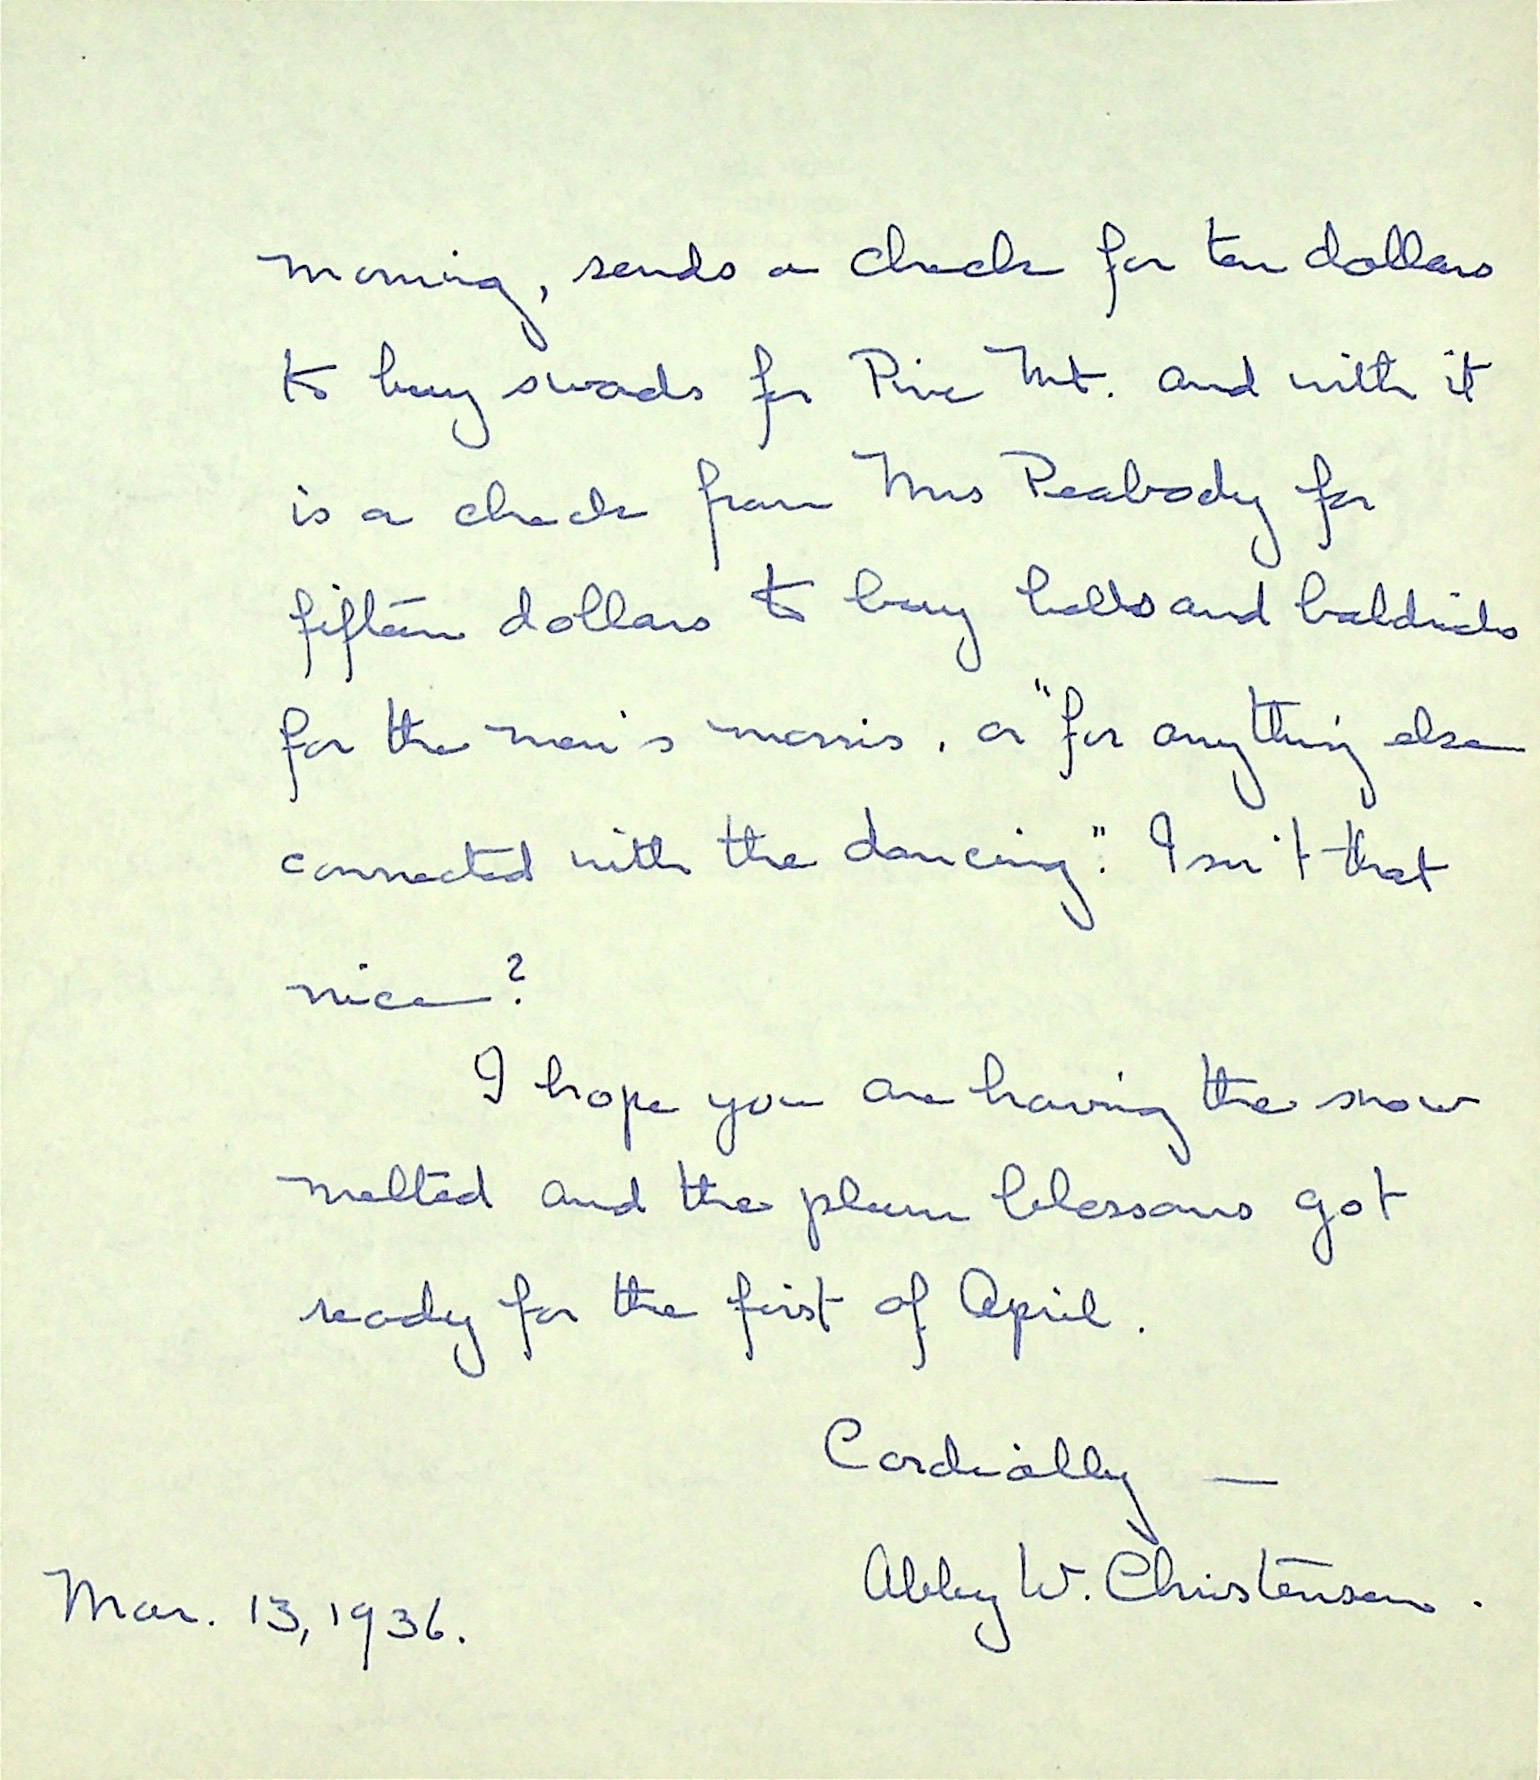 morning, sends a check for ten dollars
to buy swords for Pine Mt. and with it
is a check from Mrs Peabody for
fifteen dollars to buy bells and baldricks
for the men's morris, or "for anything else
connected with the dancing." Isn't that
nice?
I hope you are having the snow
melted and the plum blossoms got
ready for the first of April.
Cordially —
Abby W. Christensen.
Mar. 13, 1936.